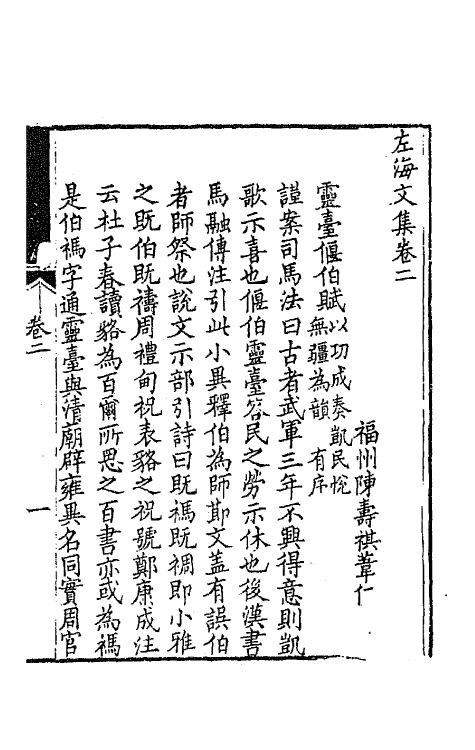 左海文集卷二
福州陳壽祺葦仁
靈臺偃伯賦以功成奏凱民悅無疆為韻 有序
謹案司馬法曰古者武軍三年不興得意則凱
歌示喜也偃伯靈臺答民之勞示休也後漢書
馬融傳注引此小異釋伯為師斯文蓋有誤伯
者師祭也說文示部引詩曰既禡既禂即小雅
之既伯既禱周禮甸祝表貉之祝號鄭康成注
云杜子春讀貉為百爾所思之百書亦或為禡
是伯禡字通靈臺與清廟辟雍異名同實周官
卷二
一